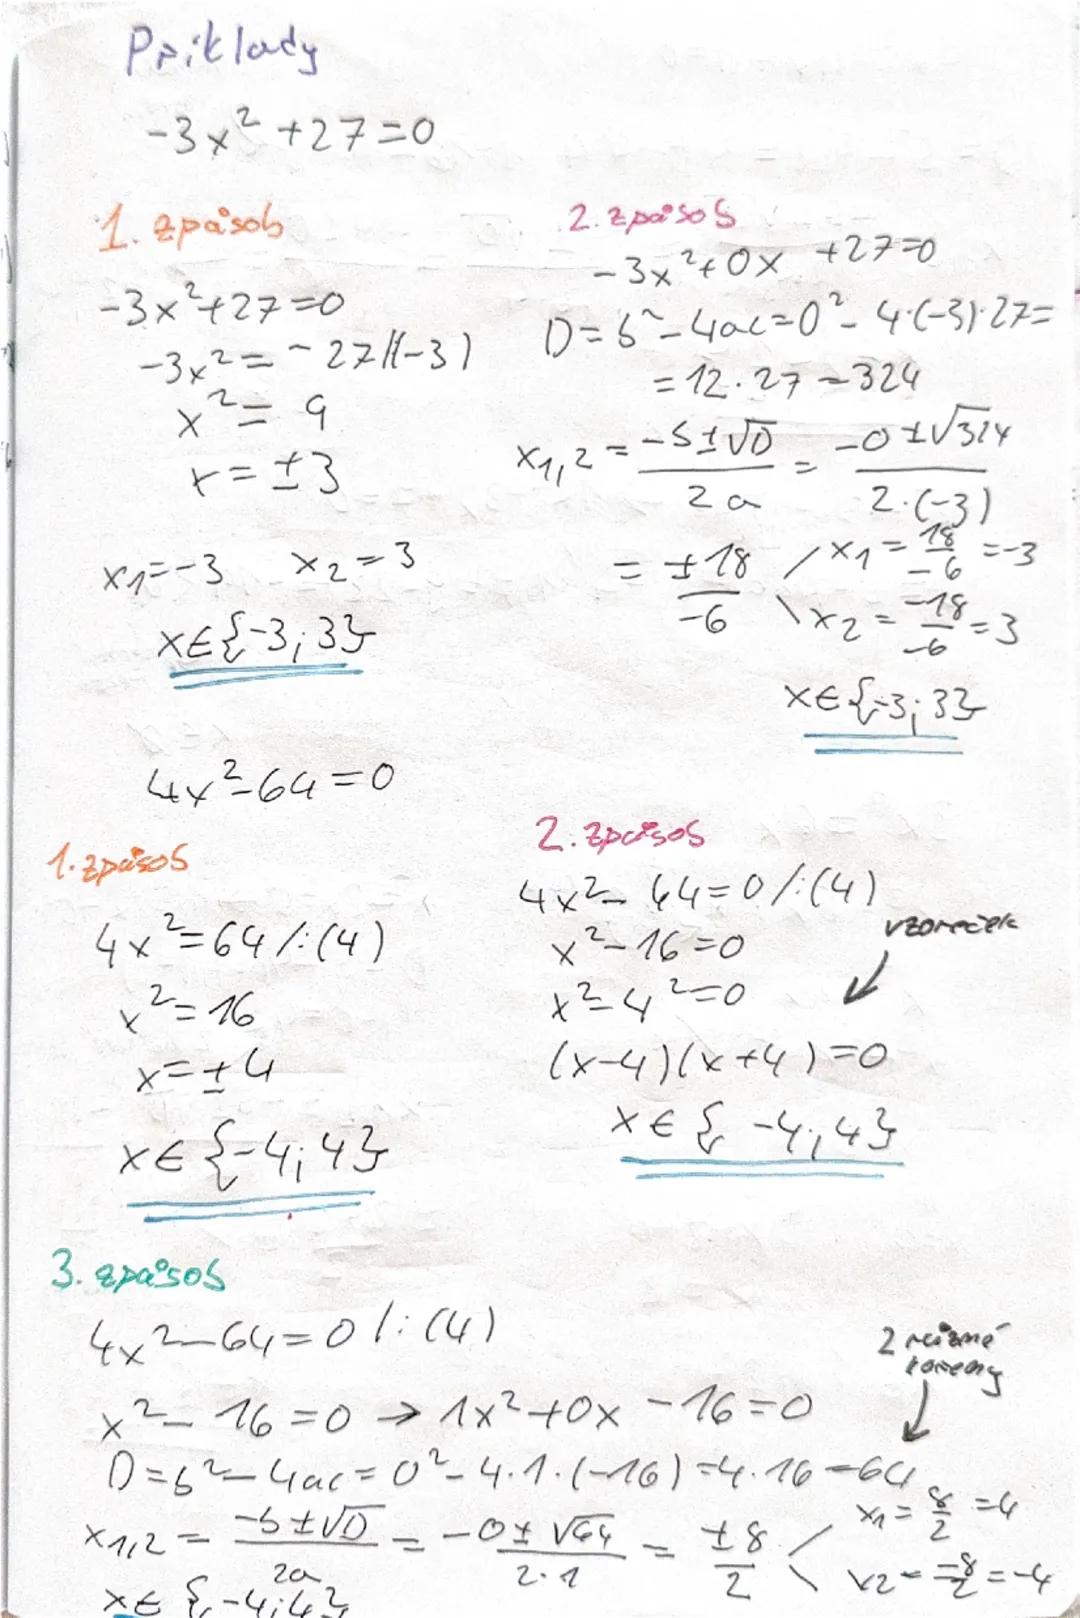 Příklady
-3x² +27=0
1. způsob
-3x²+27=0
-3x²=-27 /(-3)
x²= 9
x=±3
x1=-3 x2=3
x∈{-3;3}
2. způsob
-3x²+0x +27=0
D=b²-4ac=0²-4·(-3)·27=
=12·27=324
x1,2 = (-b±√D)/(2a) = (-0±√324)/(2·(-3))
= (±18)/(-6) / x1= 18/(-6) =-3
\ x2= (-18)/(-6) =3
x∈{-3;3}
4x²-64=0
1. způsob
4x²=64 /:(4)
x²=16
x=±4
x∈{-4;4}
2. způsob
4x²-64=0 /:(4)
vzoreček
x²-16=0
x²-4²=0
(x-4)(x+4)=0
x∈{-4;4}
3. způsob
4x²-64=0 /:(4)
2 různé
kořeny
x²-16=0 → 1x²+0x-16=0
D=b²-4ac=0²-4·1·(-16)=4·16=64
x1,2 = (-b±√D)/(2a) = (-0±√64)/(2·1) = (±8)/2 / x1= 8/2 =4
\ x2= (-8)/2 =-4
x∈{-4;4}